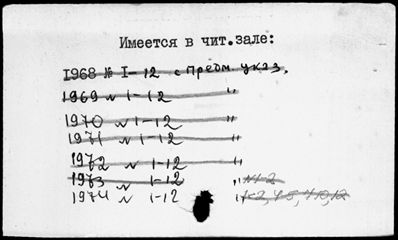 Имеется в чит.зале:
1968 № I-12 с предм. указ.
1969 № 1-12 "
1970 № 1-12 "
1971 № 1-12 "
1972 № 1-12 "
1973 № 1-12 " №1-2
1974 № 1-12 "